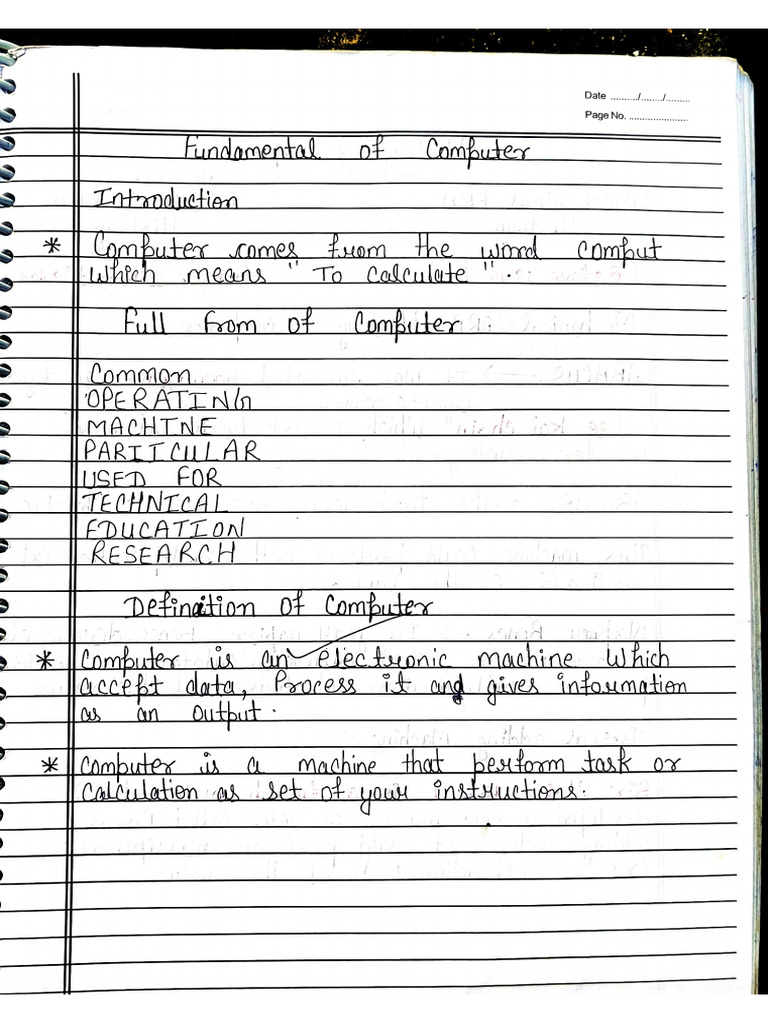 Date ........../......../.........
Page No. .......................
Fundamental of Computer
Introduction
* Computer comes from the word comput
which means " To calculate " .
Full from of Computer
Common
OPERATING
MACHINE
PARTICULAR
USED FOR
TECHNICAL
EDUCATION
RESEARCH
Definaition of Computer
* Computer is an electronic machine which
accept data, Process it and gives information
as an output .
* Computer is a machine that perform task or
calculation as set of your instructions.